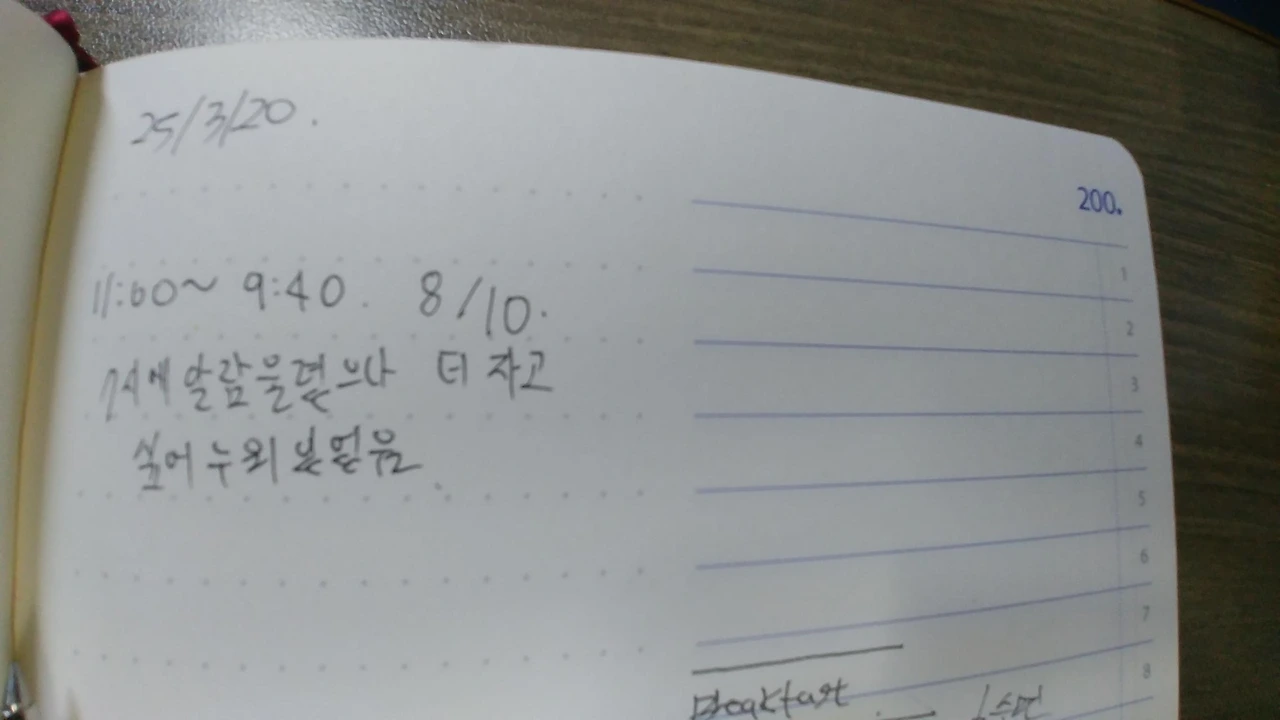 25/3/20.
200.
11:00~ 9:40. 8/10.
7시에 알람울렸으나 더 자고
싶어 누워 있었음.
1
2
3
4
5
6
7
8
Breakfast